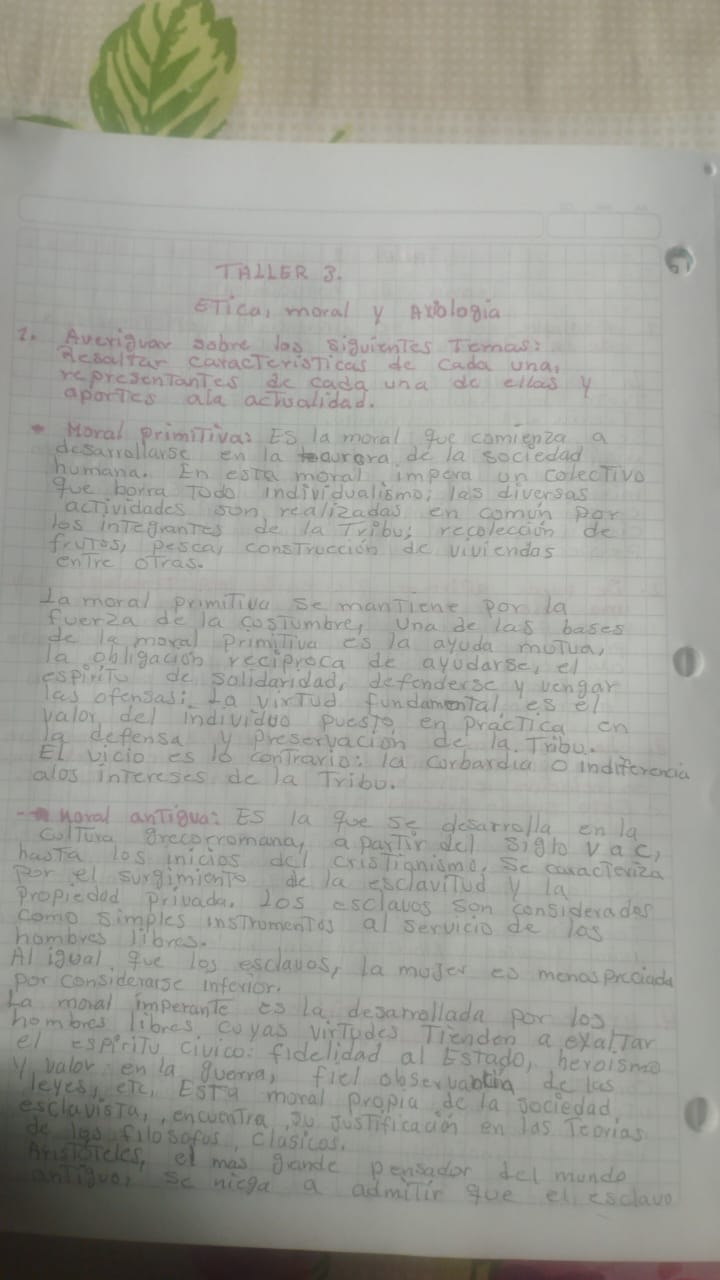 TALLER 3.
ETica, moral y Axiología
1. Averiguar sobre los siguienTes Temas:
Resaltar caracTerísTicas de cada una,
represenTanTes de cada una de ellas y
aporTes ala acTualidad.
• Moral primiTiva: ES la moral que comienza a
desarrollarse en la aurora de la sociedad
humana. En esTa moral impera un colecTivo
que borra Todo individualismo; las diversas
acTividades son realizadas en común por
los inTegranTes de la Tribu; recolección de
fruTos, pesca, consTrucción de viviendas
enTre oTras.
La moral primiTiva se manTiene por la
fuerza de la cosTumbre, una de las bases
de la moral primiTiva es la ayuda muTua,
la obligación recíproca de ayudarse, el
espíriTu de solidaridad, defenderse y vengar
las ofensas; La virTud fundamenTal es el
valor del individuo puesTo en prácTica en
la defensa y preservación de la Tribu.
El vicio es lo conTrario: la corbardia o indiferencia
alos inTereses de la Tribu.
Moral anTigua: ES la que se desarrolla en la
culTura grecorromana, a parTir del siglo V aC,
hasTa los inicios del crisTianismo, se caracTeriza
por el surgimienTo de la esclaviTud y la
propiedad privada. Los esclavos son considerados
como simples insTrumenTos al servicio de los
hombres libres.
Al igual que los esclavos, la mujer es menospreciada
por considerarse inferior.
La moral imperanTe es la desarrollada por los
hombres libres cuyas virTudes Tienden a exalTar
el espíriTu civico: fidelidad al EsTado, heroísmo
y valor en la guerra, fiel de las
leyes, eTc, ESTa moral propia de la sociedad
esclavisTa, encuenTra su jusTificación en las Teorías
de los filosofos clasicos.
ArisTóTeles, el mas grande pensador del mundo
anTiguo, se niega a admiTir que el esclavo